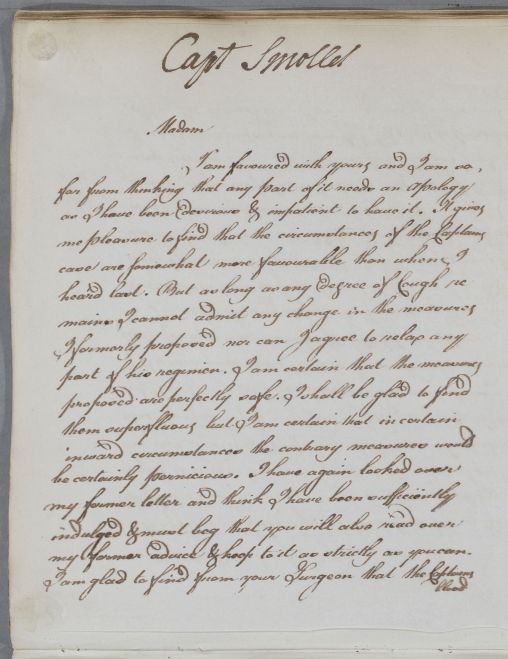 Capt Smollet
Madam
I am favoured with yours and I am so
far from thinking that any part of it needs an Apology
as I have been desirous & impatient to have it. It gives
me pleasure to find that the circumstances of the Captains
case are somewhat more favourable than when I
heard last. But as long as any Degree of Cough re
mains I cannot admit any change in the measures
I formerly proposed nor can I agree to relax any
part of his regimen. I am certain that the measures
proposed are perfectly safe. I shall be glad to find
them superfluous but I am certain that in certain
inward circumstances the contrary measures would
be certainly pernicious. I have again looked over
my former letter and think I have been sufficiently
indulged & must beg that you will also read over
my former advice & keep to it as strictly as you can.
I am glad to find from your Surgeon that the Captains
blood